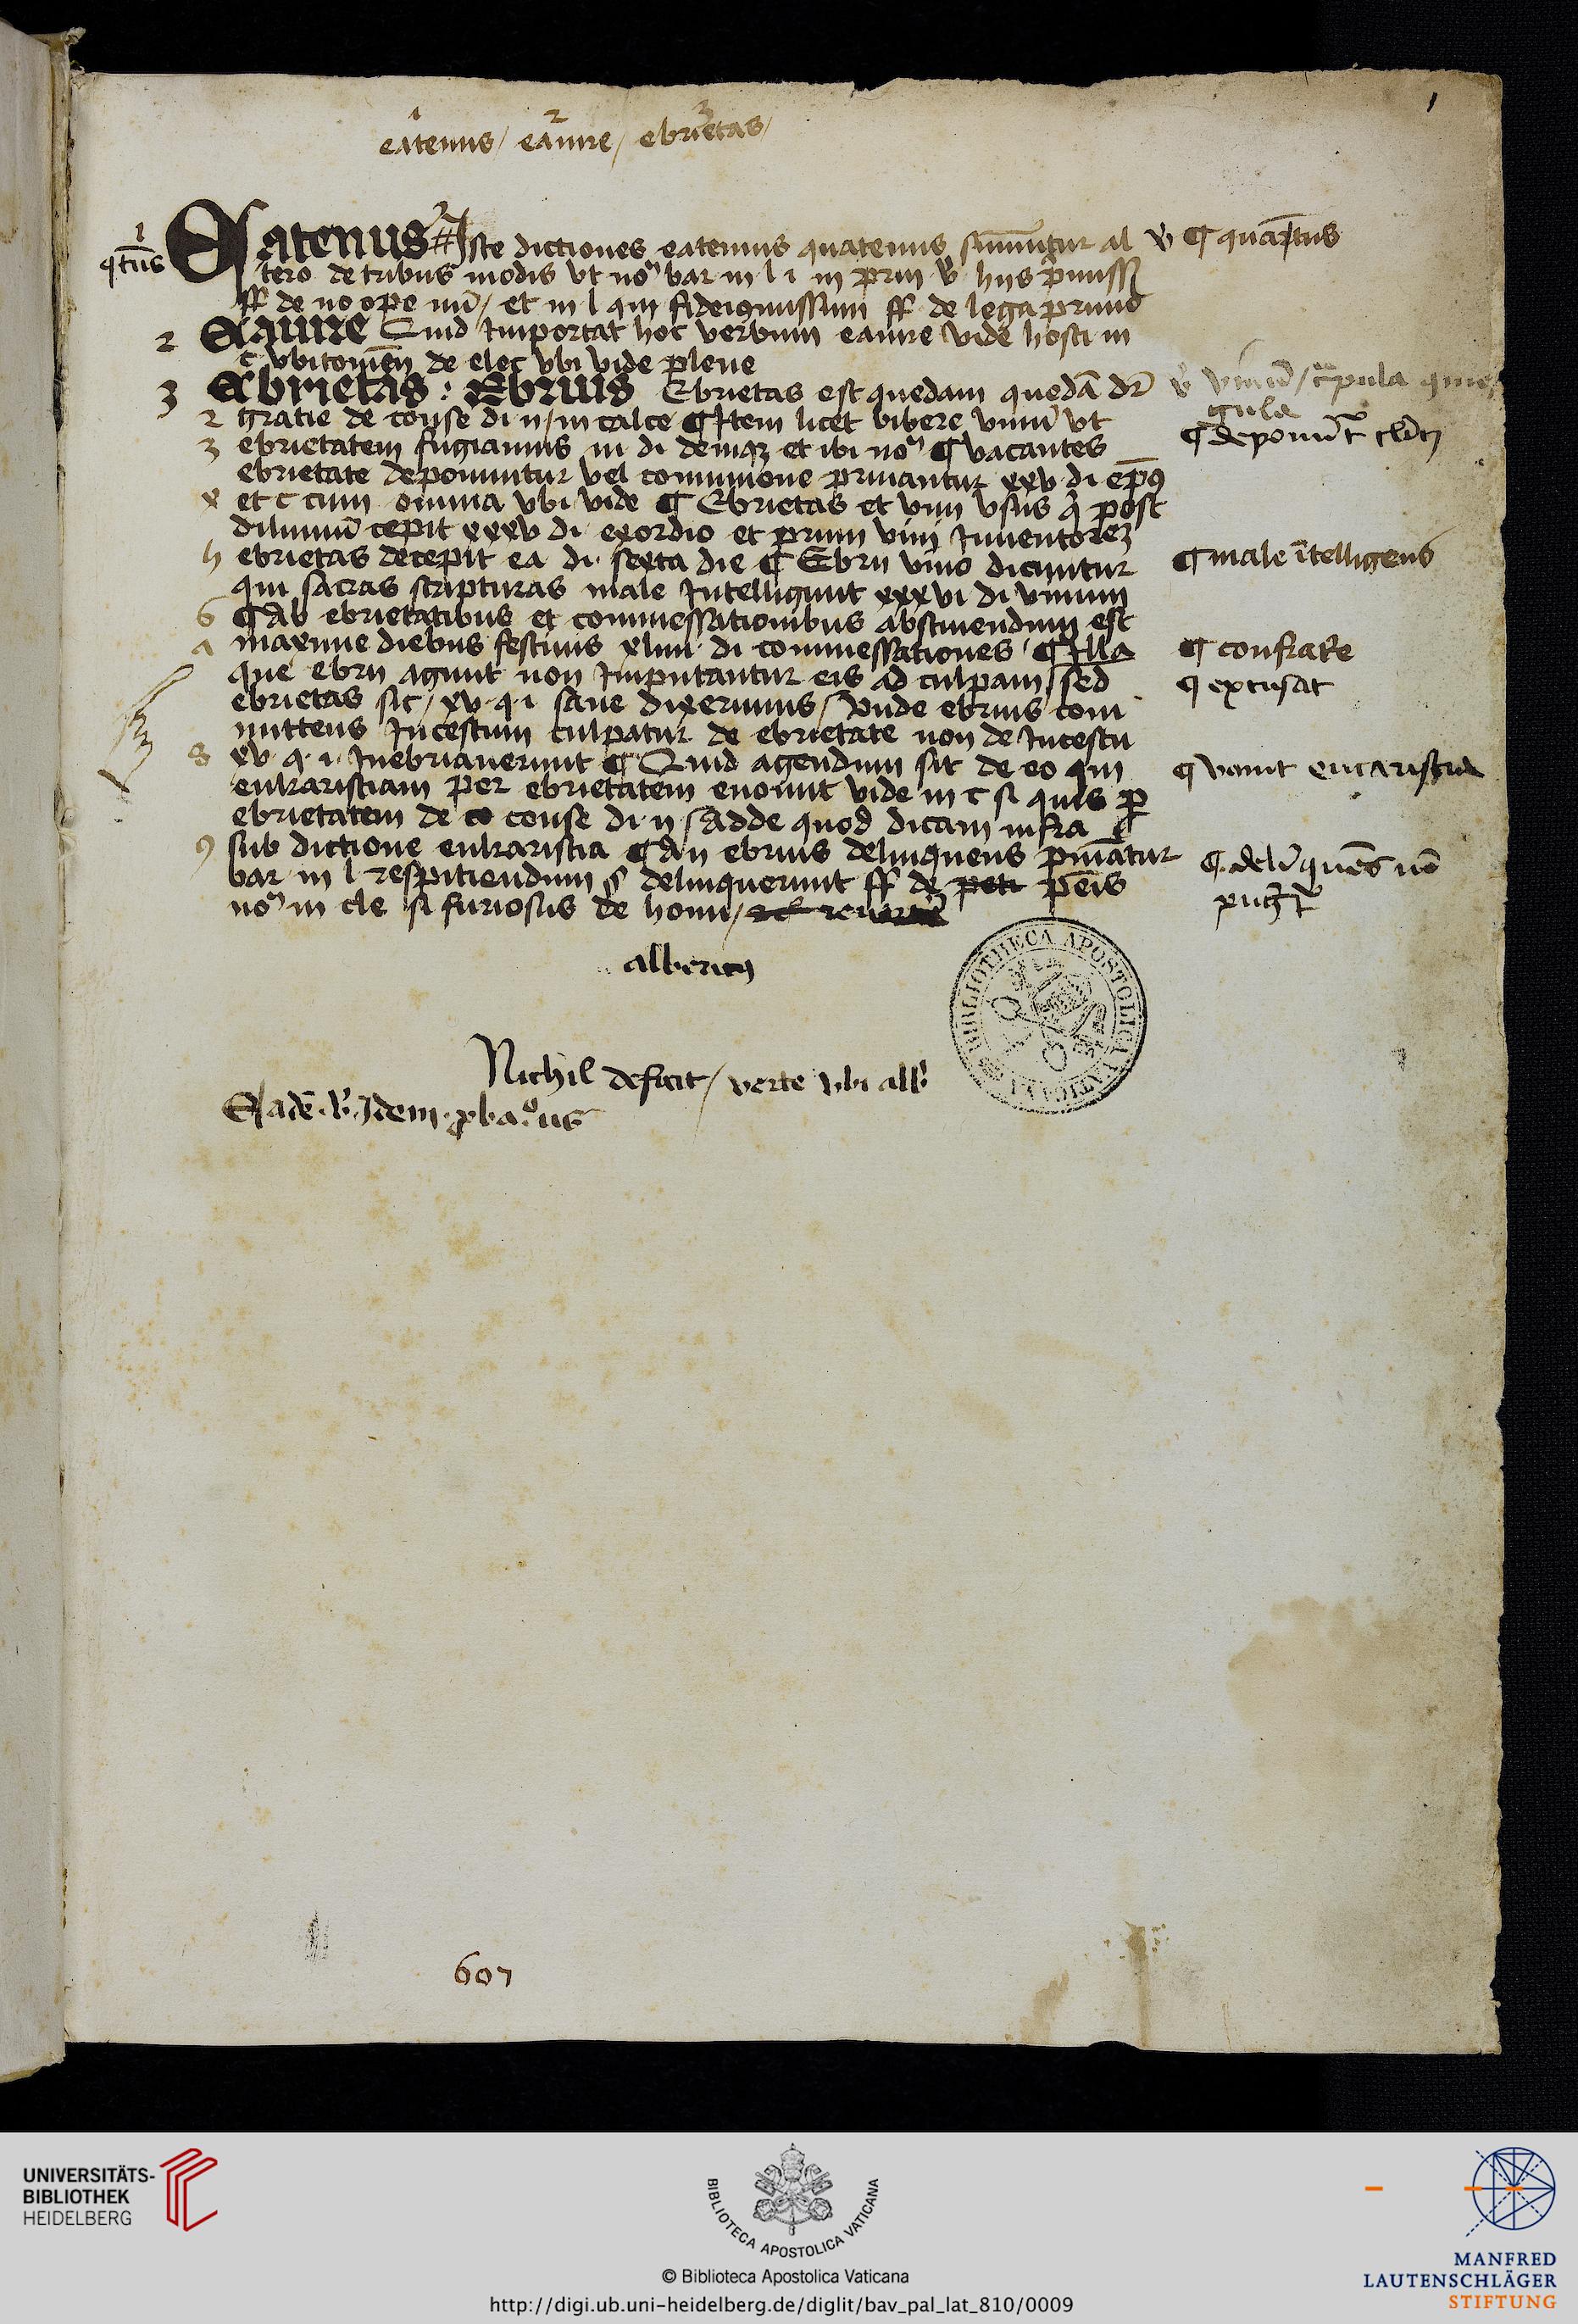 1
1 2 3
eatenus / eanire / ebrietas /
1
qtus
Eatenus Iste dictiones eatenus quatenus sumuntur al v ¶ quaptus
tero de tribus modis vt no bar in l i in prin v hiis premissis
ff de no ope nu / et in l qui fideiqmissum ff de lega primo
2 Eanire Quid Importat hoc verbum eanire vide hosti in
c vbitomen de elec vbi vide plene
3 Ebrietas : Ebrius Ebrietas est quedam quedā dr v vinū / crapula
gula
2 gratie de conse di ii / in calce ¶ Item licet bibere vinū vt
3 ebrietatem fugiamus iii di deniqz et ibi no ¶ vacantes ¶ deponunt clici
ebrietate deponuntur vel communione priuantur xxv di epus
et c cum omnia vbi vide ¶ Ebrietas et vini vsus q post
diluuiū cepit xxxv di exordio et primi vini Inuentorez
h ebrietas decepit ea di sexta die ¶ Ebrii vino dicuntur ¶ male intelligens
qui sacras scripturas male Intelligunt xxxvi di vinum
6 ¶ Ab ebrietatibus et commessationibus abstinendum est
maxime diebus festiuis xliiii di commessationes ¶ Illa ¶ confrare
que ebrii agunt non Imputantur eis ad culpam / sed ¶ excusat
ebrietas sic / xv q i sane dixerimus / Vnde ebrius com
mittens Incestum culpatur de ebrietate non de Incestu
8 xv q i Inebriauerunt ¶ Quid agendum sit de eo qui ¶ vomit eucaristia
eukaristiam per ebrietatem euomit vide in c si quis p
ebrietatem de co conse di ii / Adde quod dicam infra
9 sub dictione eukaristia ¶ An ebrius delinquens puniatur ¶ delinques no
bar in l respitiendum § delinquerunt ff de peti penis
no in cle si furiosus de homi /
albericus
Nichil deficit / verte vbi alb
Eadē v Idem
607
BIBLIOTHECA APOSTOLICA VATICANA
UNIVERSITÄTS-
BIBLIOTHEK
HEIDELBERG
BIBLIOTECA APOSTOLICA VATICANA
© Biblioteca Apostolica Vaticana
http://digi.ub.uni-heidelberg.de/diglit/bav_pal_lat_810/0009
MANFRED
LAUTENSCHLÄGER
STIFTUNG